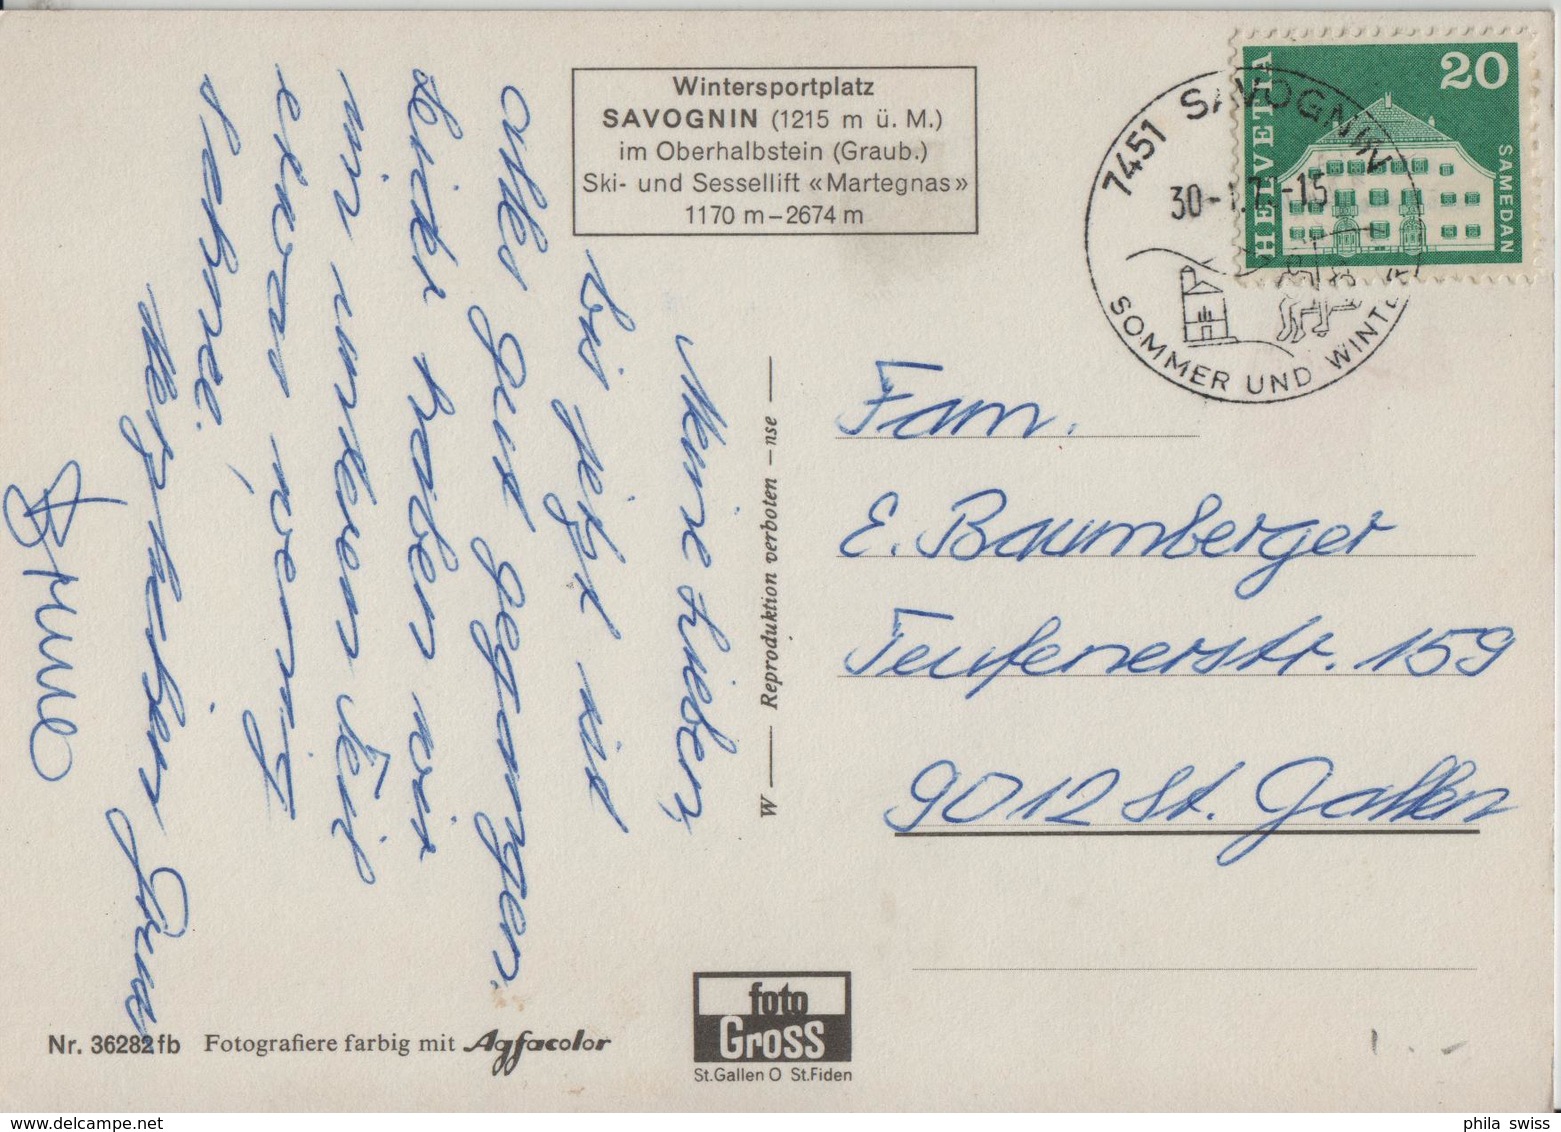 Wintersportplatz
SAVOGNIN (1215 m ü. M.)
im Oberhalbstein (Graub.)
Ski- und Sessellift «Martegnas»
1170 m – 2674 m
Meine Lieben,
bis jetzt ist
alles gut gegangen.
Leider haben wir
im unteren Teil
etwas wenig
Schnee.
Herzlichen Gruss
W — Reproduktion verboten – nse —
HELVETIA
20
SAMEDAN
7451 SAVOGNIN
SOMMER UND WINTER
Fam.
E. Baumberger
Teufenerstr. 159
9012 St. Gallen
Nr. 36282 fb Fotografiere farbig mit Agfacolor
foto
Gross
St.Gallen O St.Fiden
phila swiss